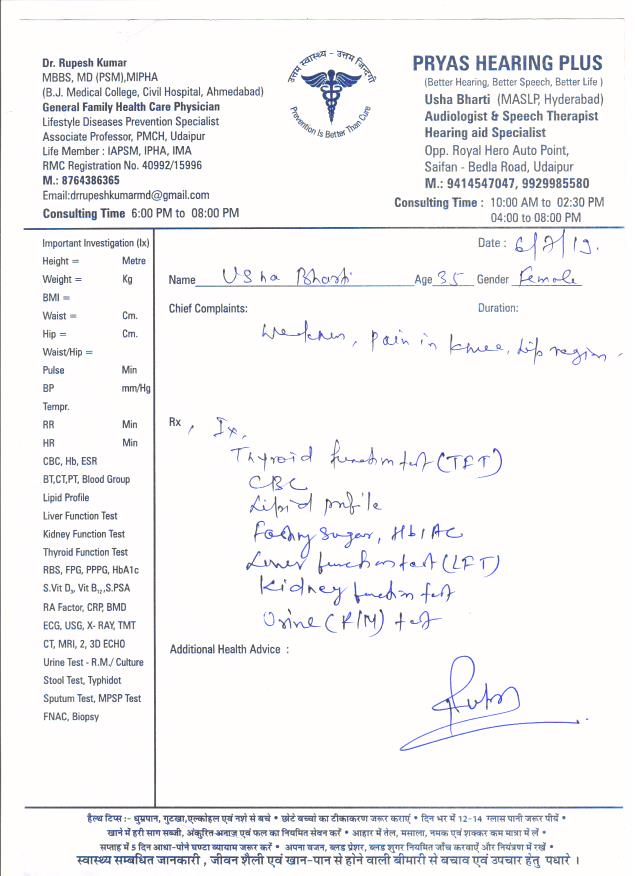 Dr. Rupesh Kumar
MBBS, MD (PSM),MIPHA
(B.J. Medical College, Civil Hospital, Ahmedabad)
General Family Health Care Physician
Lifestyle Diseases Prevention Specialist
Associate Professor, PMCH, Udaipur
Life Member : IAPSM, IPHA, IMA
RMC Registration No. 40992/15996
M.: 8764386365
Email:drrupeshkumarmd@gmail.com
Consulting Time 6:00 PM to 08:00 PM
उत्तम स्वास्थ्य - उत्तम जिन्दगी
Prevention Is Better Than Cure
PRYAS HEARING PLUS
(Better Hearing, Better Speech, Better Life )
Usha Bharti (MASLP, Hyderabad)
Audiologist & Speech Therapist
Hearing aid Specialist
Opp. Royal Hero Auto Point,
Saifan - Bedla Road, Udaipur
M.: 9414547047, 9929985580
Consulting Time : 10:00 AM to 02:30 PM
04:00 to 08:00 PM
Important Investigation (Ix)
Height = Metre
Weight = Kg
BMI =
Waist = Cm.
Hip = Cm.
Waist/Hip =
Pulse Min
BP mm/Hg
Tempr.
RR Min
HR Min
CBC, Hb, ESR
BT,CT,PT, Blood Group
Lipid Profile
Liver Function Test
Kidney Function Test
Thyroid Function Test
RBS, FPG, PPPG, HbA1c
S.Vit D3, Vit B12,S.PSA
RA Factor, CRP, BMD
ECG, USG, X- RAY, TMT
CT, MRI, 2, 3D ECHO
Urine Test - R.M./ Culture
Stool Test, Typhidot
Sputum Test, MPSP Test
FNAC, Biopsy
Date : 6/7/19.
Name Usha Bharti Age 35 Gender Female
Chief Complaints: Duration:
pain in knee, hip region
Rx , Ix,
Thyroid function test (TFT)
CBC
Lipid profile
Fasting sugar, Hb1AC
Liver function test (LFT)
Kidney function test
Urine (R/M) test
Additional Health Advice :
हैल्थ टिप्स :- धुम्रपान, गुटखा,एल्कोहल एवं नशे से बचे • छोटे बच्चों का टीकाकरण जरूर कराएं • दिन भर में 12-14 ग्लास पानी जरूर पीयें
खाने में हरी साग सब्जी, अंकुरित अनाज एवं फल का नियमित सेवन करें • आहार में तेल, मसाला, नमक एवं शक्कर कम मात्रा में लें •
सप्ताह में 5 दिन आधा-पोने घण्टा व्यायाम जरूर करें • अपना वजन, ब्लड प्रेशर, ब्लड शुगर नियमित जाँच करवाएँ और नियंत्रण में रखें •
स्वास्थ्य सम्बधित जानकारी , जीवन शैली एवं खान-पान से होने वाली बीमारी से बचाव एवं उपचार हेतु पधारे ।